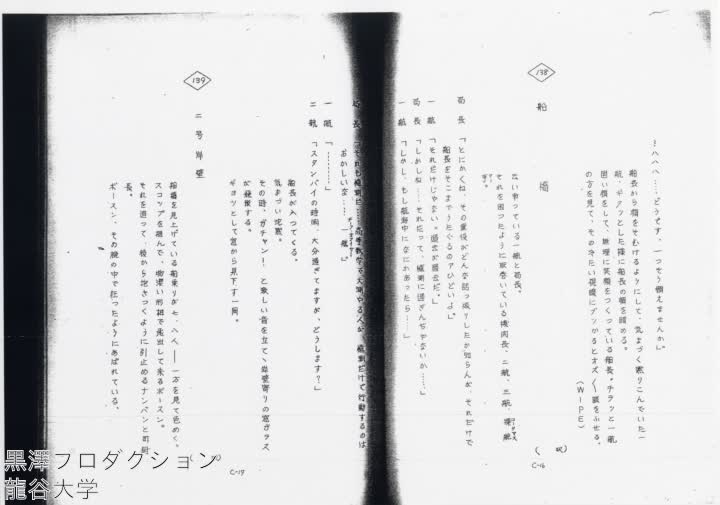 ―ハハハ……どうです、一つそう願えませんか。
船長から顔をそむけるようにして、気まづく黙りこんでいた一
航、ギクッとした様に船長の顔を眺める。
固い顔をして、無理に笑顔をつくっている船長。チラッと一航
の方を見て、その冷たい視線にブッつかるとオズ〳〵顔をふせる。
(WIPE)
138
船橋
云い争っている一航と局長。
それを困ったように取巻いている機関長、二航、三航、
局長「とにかくね、その重役がどんな話っ振りしたか知らんが、それだけで
船長をそこまでうたぐるのアひどいよ」
一航「それだけじゃない。過去が過去だ。」
局長「しかしね……それだって、臆測に過ぎんぢゃないか……」
一航「しかし、もし航海中になにかあったら……」
C-16
おかしいな……一航」
一航「…………」
二航「スタンバイの時間、大分過ぎてますが、どうします?」
船長が入ってくる。
気まづい沈黙。
その時、ガチャン!、と激しい音を立てゝ岸壁寄りの窓ガラス
が破壊する。
ギョッとして窓から見下す一同。
139
二号岸壁
船橋を見上げている船乗りが七、八人――一方を見て色めく。
スコップを掴んで、物凄い形相で走出して来るボースン。
それを追って、後から抱きつくように引止めるナンバンと司厨
長。
ボースン、その腕の中で狂ったようにあばれている。
C-17
黒澤プロダクション
龍谷大学